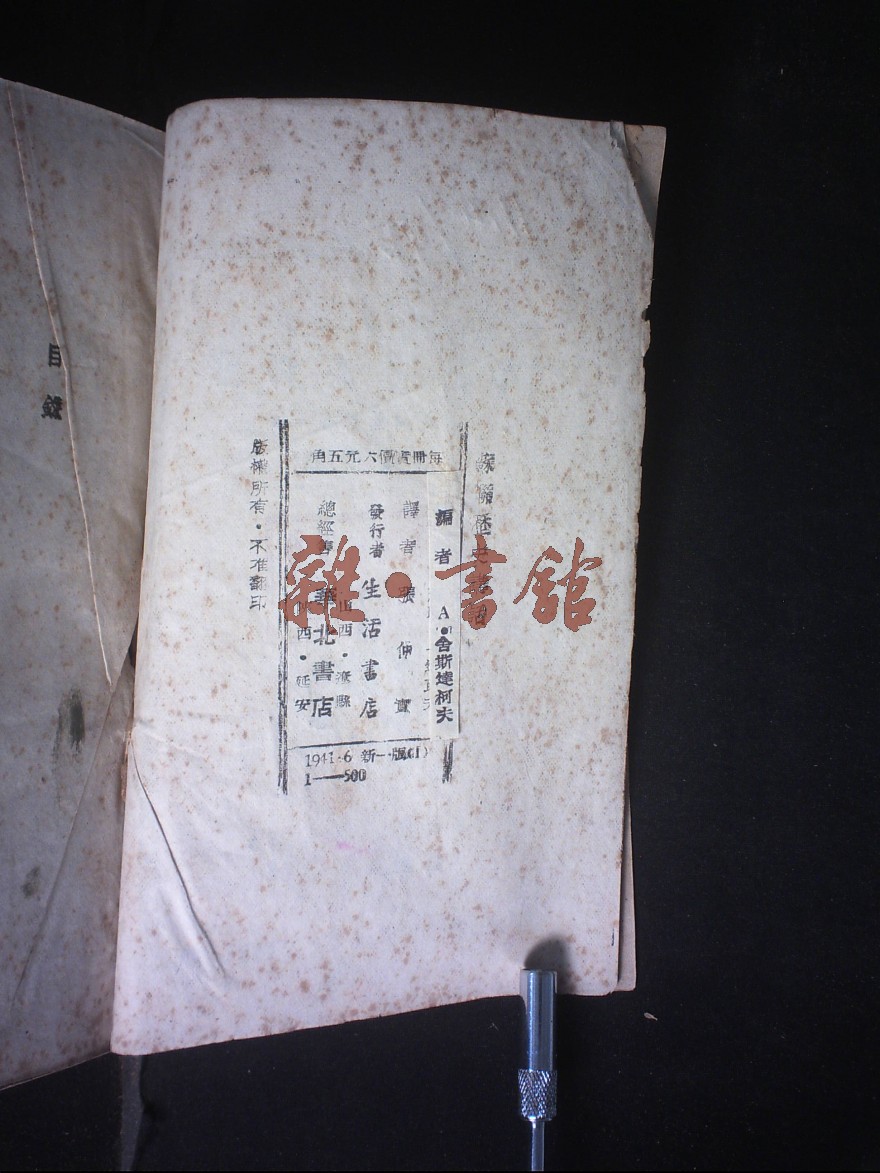 每冊實價六元五角
編者 A·舍斯達柯夫
譯者 張仲實
發行者 生活書店
山西·遼縣
總經售 華北書店
陝西·延安
1941·6 新一版(1)
1——500
版權所有·不准翻印
目錄
雜·書館